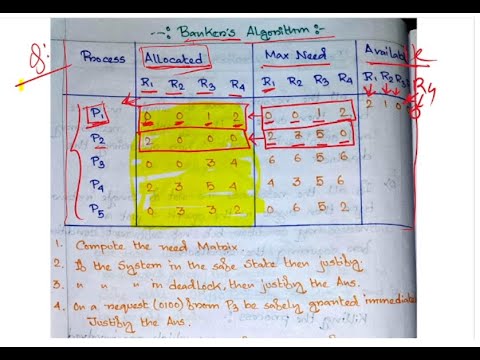 -:: Banker's Algorithm :-
Q:
Process Allocated Max Need Available
R1 R2 R3 R4 R1 R2 R3 R4 R1 R2 R3 R4
P1 0 0 1 2 0 0 1 2 2 1 0 0
P2 2 0 0 0 2 7 5 0
P3 0 0 3 4 6 6 5 6
P4 2 3 5 4 4 3 5 6
P5 0 3 3 2 0 6 5 2
1. Compute the need Matrix.
2. If the System in the safe State then justify.
3. " " " in deadlock, then justify the Ans.
4. On a request (0100) from P3 be safely granted immediate
Justify the Ans.